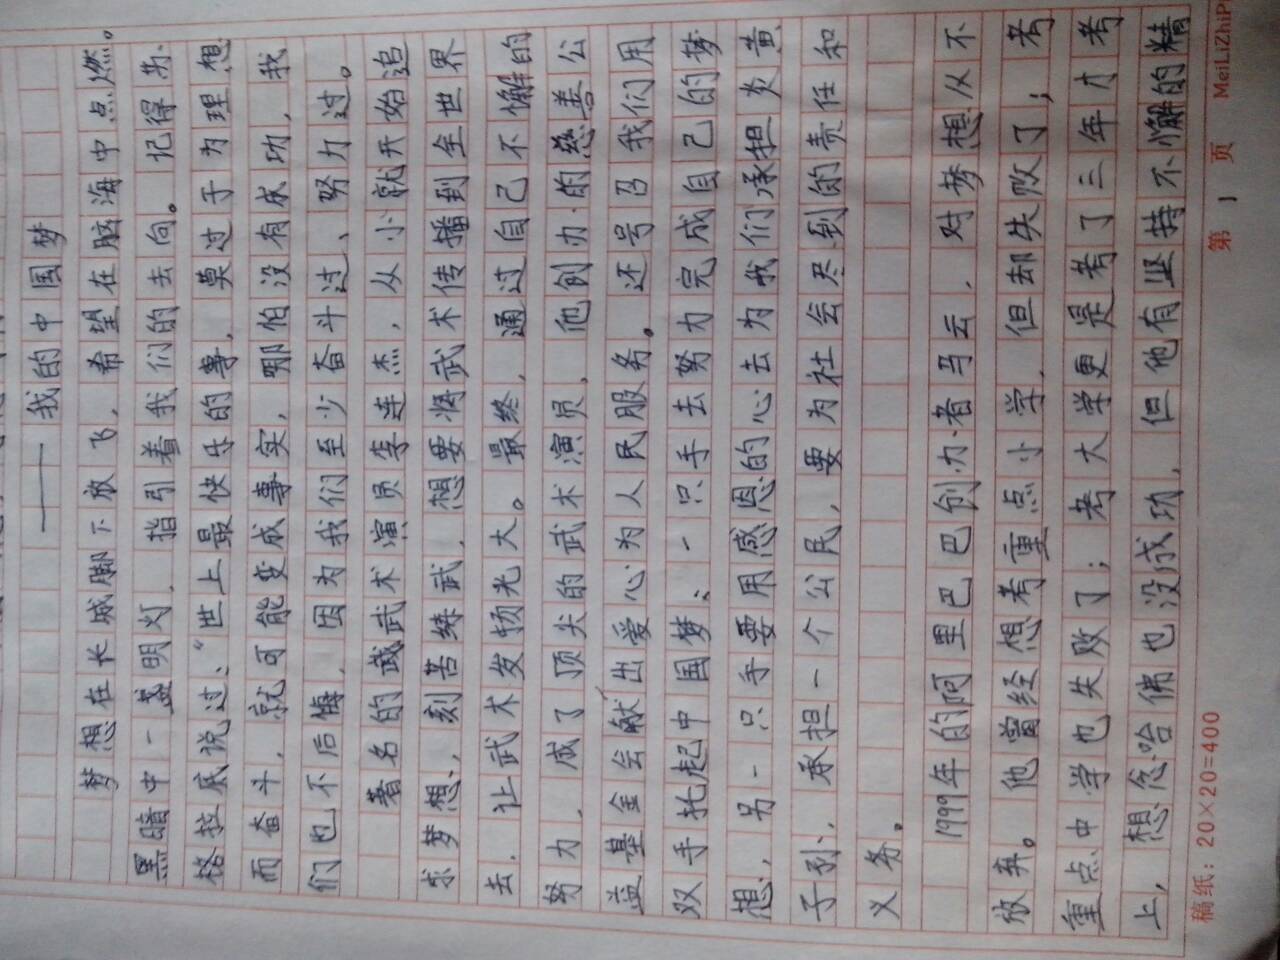 ——我的中国梦
梦想在长城脚下放飞,希望在脑海中点燃。
黑暗中一盏明灯,指引着我们的去向。记得苏
格拉底说过:“世上最快乐的事,莫过于为理想
而奋斗,就可能变成事实,哪怕没有成功,我
们也不后悔,因为我们至少奋斗过、努力过。
著名的武武术演员李连杰,从小就开始追
求梦想,刻苦练武,想要将武术传播到全世界
去,让武术发扬光大。最终,通过自己不懈的
努力,成了顶尖的武术演员,他创办的慈善公
益基金会献出爱心为人民服务。还号召我们用
双手托起中国梦:一只手去努力完成自己的梦
想,另一只手要用感恩的心去为我们承担炎黄
子孙,承担一个公民,要为社会尽到的责任和
义务。
1999年的阿里巴巴创办者马云,对梦想从不
放弃。他曾经想考重点小学,但却失败了;考
重点中学也失败了;考大学更是考了三年才考
上,想念哈佛也没成功,但他有坚持不懈的精
稿纸:20×20=400
第 1 页 MeiLiZhiP